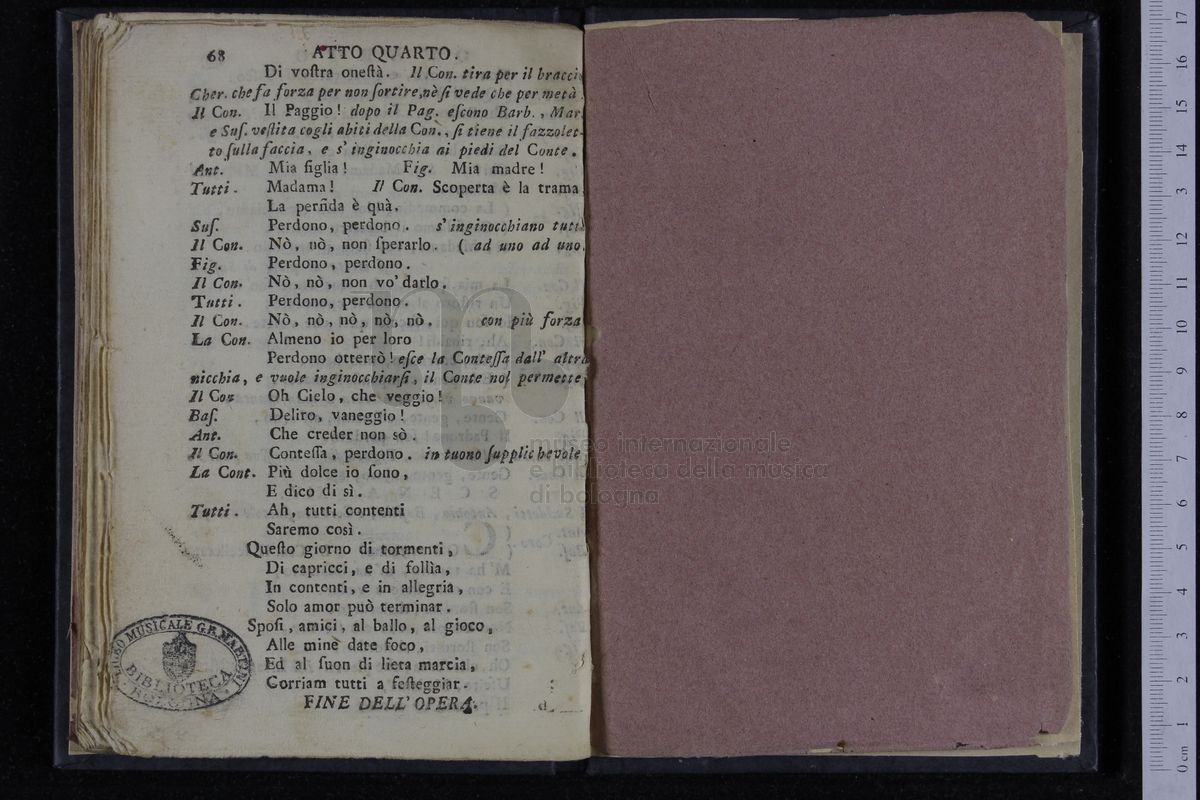 68 ATTO QUARTO.
Di voſtra oneſtà. Il Con. tira per il bracci
Cher. che fa forza per non ſortire, nè ſi vede che per metà
Il Con. Il Paggio! dopo il Pag. eſcono Barb., Mar.
e Suſ. veſtita cogli abiti della Con., ſi tiene il fazzolet-
to ſulla faccia, e s'inginocchia ai piedi del Conte.
Ant. Mia figlia! Fig. Mia madre!
Tutti. Madama! Il Con. Scoperta è la trama
La perfida è quà.
Suſ. Perdono, perdono. s'inginocchiano tutti
Il Con. Nò, nò, non ſperarlo. ( ad uno ad uno.
Fig. Perdono, perdono.
Il Con. Nò, nò, non vo' darlo.
Tutti. Perdono, perdono.
Il Con. Nò, nò, nò, nò, nò. con più forza
La Con. Almeno io per loro
Perdono otterrò! eſce la Conteſſa dall' altra
nicchia, e vuole inginocchiarſi, il Conte nol permette
Il Con Oh Cielo, che veggio!
Baſ. Deliro, vaneggio!
Ant. Che creder non sò.
Il Con. Conteſſa, perdono. in tuono ſupplichevole
La Cont. Più dolce io ſono,
E dico di sì.
Tutti. Ah, tutti contenti
Saremo così.
Queſto giorno di tormenti,
Di capricci, e di follìa,
In contenti, e in allegria,
Solo amor può terminar.
Spoſi, amici, al ballo, al gioco,
Alle mine date foco,
Ed al ſuon di lieta marcia,
Corriam tutti a feſteggiar.
FINE DELL'OPERA.
LICEO MUSICALE G.B. MARTINI
BIBLIOTECA
BOLOGNA
museo internazionale
e biblioteca della musica
di bologna
0 cm 1 2 3 4 5 6 7 8 9 10 11 12 13 14 15 16 17